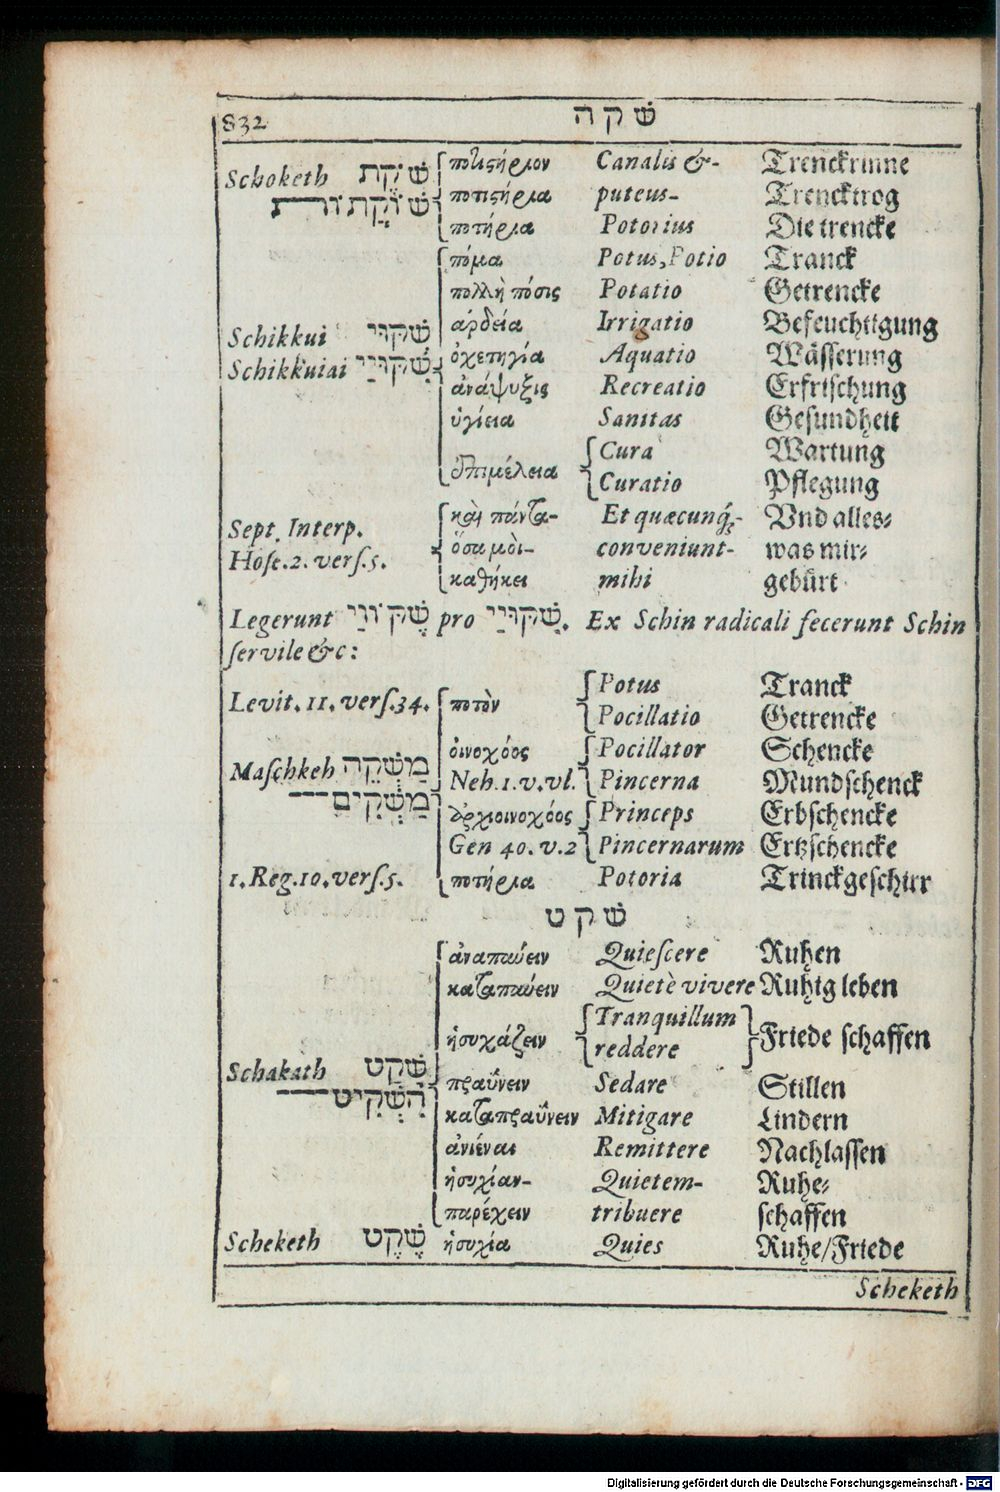 832 שׁקה
Schoketh שֹׁקֶת ποτιστήριον Canalis &- Trenckrinne
שׁוֹקָתוֹת ποτιστήρια puteus- Trencktrog
ποτήρια Potorius Die trencke
πόμα Potus, Potio Tranck
πολλὴ πόσις Potatio Getrencke
Schikkui שִׁקּוּי ἀρδεία Irrigatio Befeuchtigung
Schikkuiai שִׁקּוּיַי ὀχετηγία Aquatio Wässerung
ἀνάψυξις Recreatio Erfrischung
ὑγίεια Sanitas Gesundheit
ἐπιμέλεια Cura Wartung
Curatio Pflegung
Sept. Interp. καὶ πάντα- Et quæcunq́;- Vnd alles-
Hose. 2. vers. 5. ὅσα μοι- conveniunt- was mir-
καθήκει mihi gebürt
Legerunt שֶׁקּוֹוַי pro שִׁקּוּיַי. Ex Schin radicali fecerunt Schin
servile &c:
Levit. 11. vers. 34. ποτὸν Potus Tranck
Pocillatio Getrencke
οἰνοχόος Pocillator Schencke
Maschkeh מַשְׁקֵה Neh. 1. v. vl. Pincerna Mundschenck
מַשְׁקִים ἀρχιοινοχόος Princeps Erbschencke
Gen 40. v. 2 Pincernarum Ertzschencke
1. Reg. 10. vers. 5. ποτήρια Potoria Trinckgeschirr
שׁקט
ἀναπαύειν Quiescere Ruhen
καταπαύειν Quietè vivere Ruhig leben
ἡσυχάζειν Tranquillum Friede schaffen
reddere
Schakath שָׁקַט πραΰνειν Sedare Stillen
הִשְׁקִיט καταπραΰνειν Mitigare Lindern
ἀνιέναι Remittere Nachlassen
ἡσυχίαν- Quietem- Ruhe-
παρέχειν tribuere schaffen
Scheketh שֶׁקֶט ἡσυχία Quies Ruhe/Friede
Scheketh
Digitalisierung gefördert durch die Deutsche Forschungsgemeinschaft - DFG